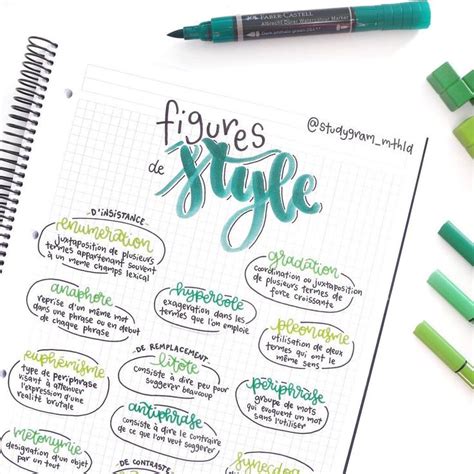 FABER-CASTELL
Albrecht Dürer Watercolour Marker
@studygram_mthld
figures
de style
D'INSISTANCE
énumération
juxtaposition de plusieurs
termes appartenant souvent
à un même champs lexical
gradation
coordination ou juxtaposition
de plusieurs termes de
force croissante
anaphore
reprise d'un même mot
dans une phrase ou en début
de chaque phrase
hyperbole
exagération dans les
termes que l'on emploie
pléonasme
utilisation de deux
termes qui ont le
même sens
DE REMPLACEMENT
euphémisme
type de périphrase
visant à atténuer
l'expression d'une
réalité brutale
litote
consiste à dire peu pour
suggérer beaucoup
périphrase
groupe de mots
qui évoquent un mot
sans l'utiliser
métonymie
désignation d'un objet
par un tout
antiphrase
consiste à dire le contraire
de ce que l'on veut suggérer
DE CONTRASTE